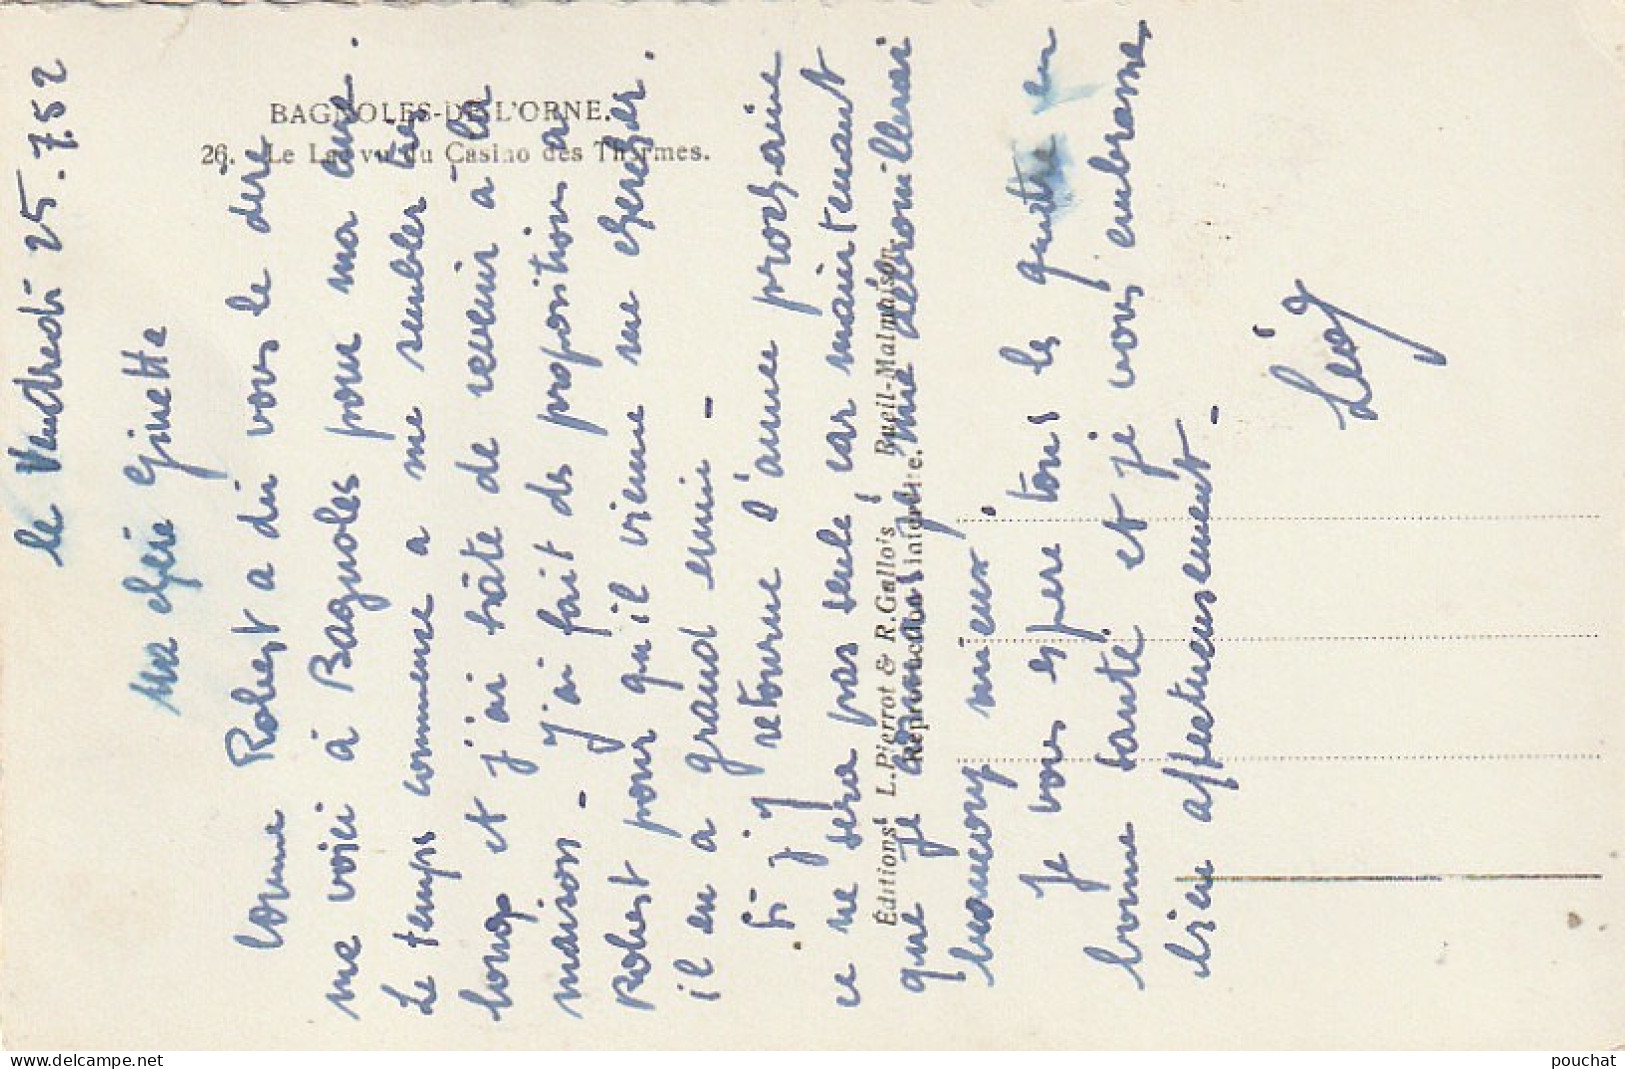 le Vendredi 25.7.52
Ma chère Ginette
Comme Robert a dû vous le dire
me voici à Bagnoles pour ma cure.
Le temps commence a me sembler très
long et j'ai hâte de revenir à la
maison - J'ai fait des proposition a
Robert pour qu'il vienne me chercher.
il en a grand envie -
Si j'y retourne l'année prochaine
ce ne sera pas seule car maintenant
que je connais, je me débrouillerai
beaucoup mieux.
Je vous espère tous les quatre en
bonne santé et je vous embrasse
bien affectueusement -
BAGNOLES-DE-L'ORNE.
26. - Le Lac vu du Casino des Thermes.
Éditions L. Pierrot & R. Gallois, Rueil-Malmaison
Reproduction interdite.
www.delcampe.net
pouchat